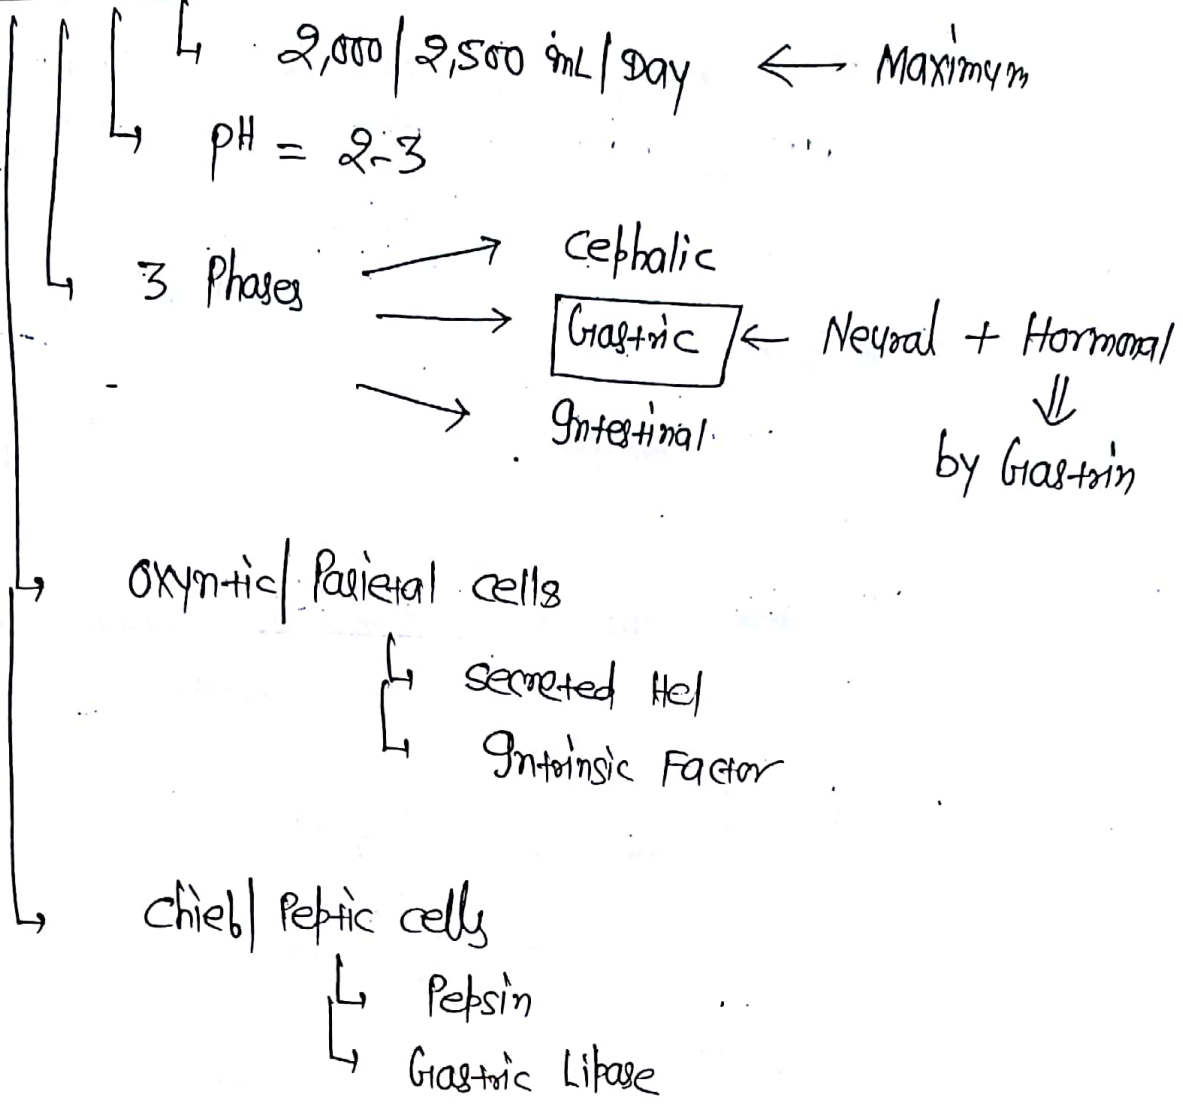 ↳ 2,000/2,500 mL/Day ← Maximum
↳ pH = 2-3
↳ 3 Phases → Cephalic
→ Gastric ← Neural + Hormonal
→ Intestinal ⇓
by Gastrin
↳ Oxyntic/Parietal cells
↳ Secreted Hcl
↳ Intrinsic Factor
↳ Chief/Peptic cells
↳ Pepsin
↳ Gastric Lipase